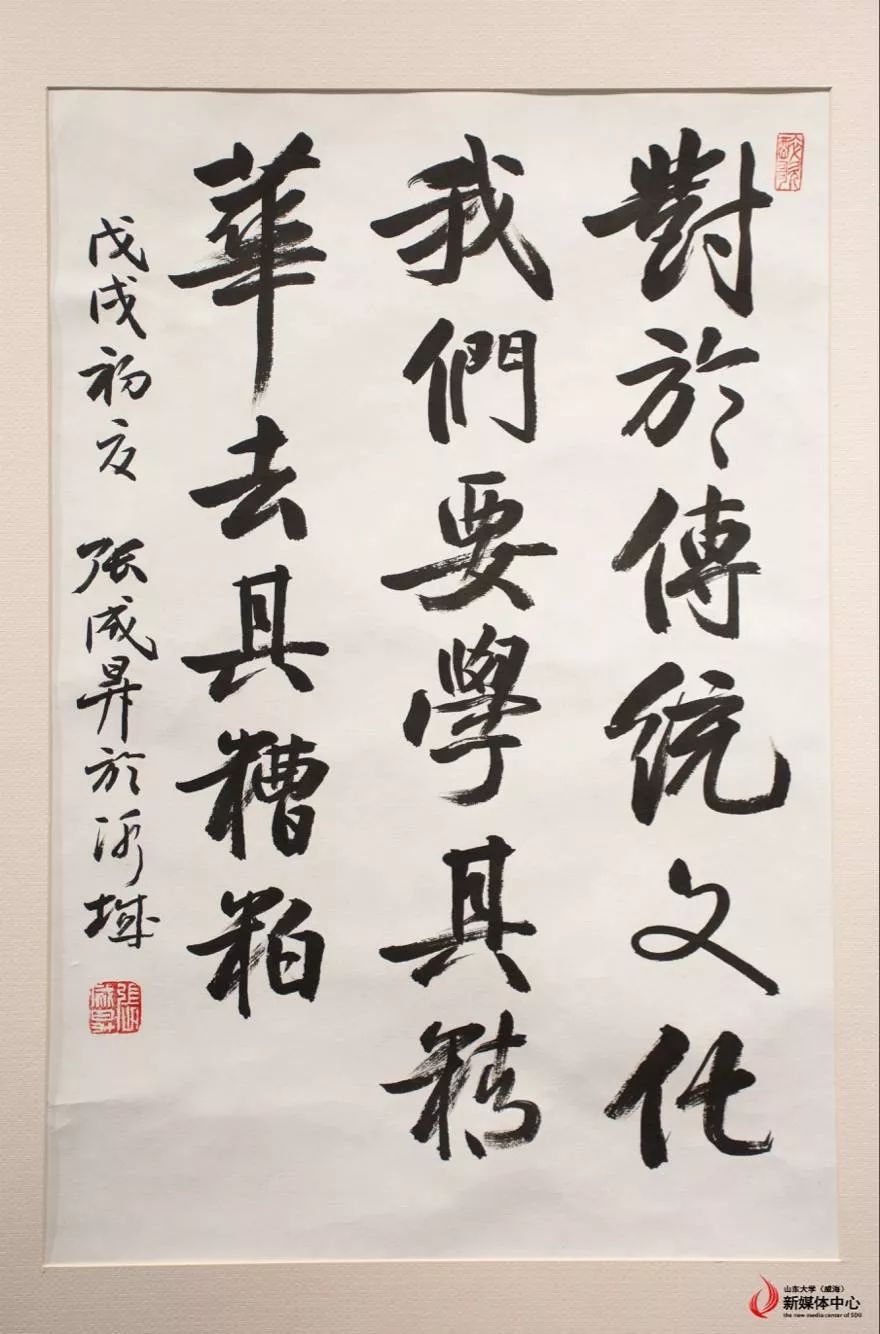 對於傳統文化
我們要學其精
華去其糟粕
戊戌初夏 張成昇於河城
張成昇印
山东大学（威海）
新媒体中心
the new media center of SDU